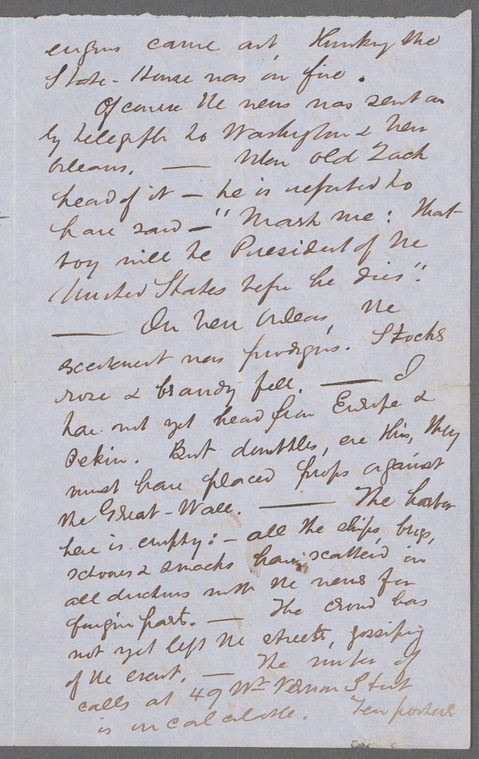 engines came out, thinking the
State-House was on fire.
Of course the news was sent on
by telegraph to Washington & New
Orleans. — When old Zack
heard of it — he is reported to
have said — "Mark me: that
boy will be President of the
United States before he dies".
— In New Orleans, the
excitement was prodigious. Stocks
rose & brandy fell. — I
have not yet heard from Europe &
Pekin. But doubtless, ere this, they
must have placed props against
the Great-Wall. — The harbor
here is empty: — all the ships, brigs,
schooners & smacks having scattered in
all directions with the news for
foreign parts. — The crowd has
not yet left the streets, gossiping
of the event. — The number of
calls at 49 Mt Vernon Street
is incalculable. Ten porters